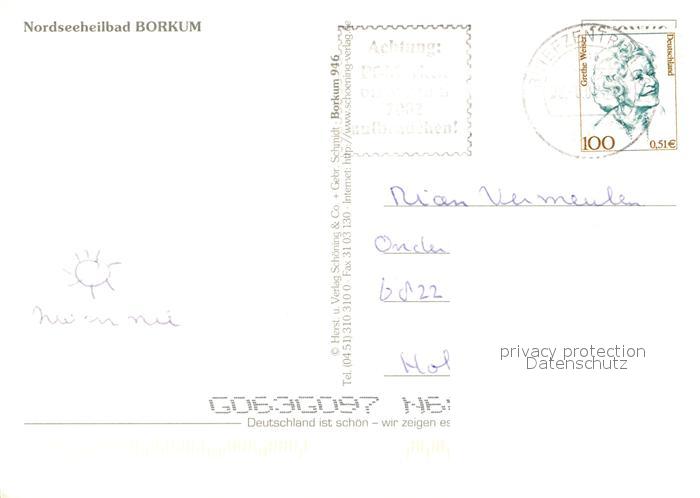 Nordseeheilbad BORKUM
Achtung:
2002
aufbrauchen!
BRIEFZENTR
Grethe Weiser
Deutschland
100 0,51€
© Herst. u. Verlag Schöning & Co. + Gebr. Schmidt · Borkum 946
Tel. (04 51) 310 310 0 · Fax 31 03 130 · Internet: http://www.schoening-verlag.de
Rian Vermeulen
Onder
6822
Hol
privacy protection
Datenschutz
Deutschland ist schön – wir zeigen es